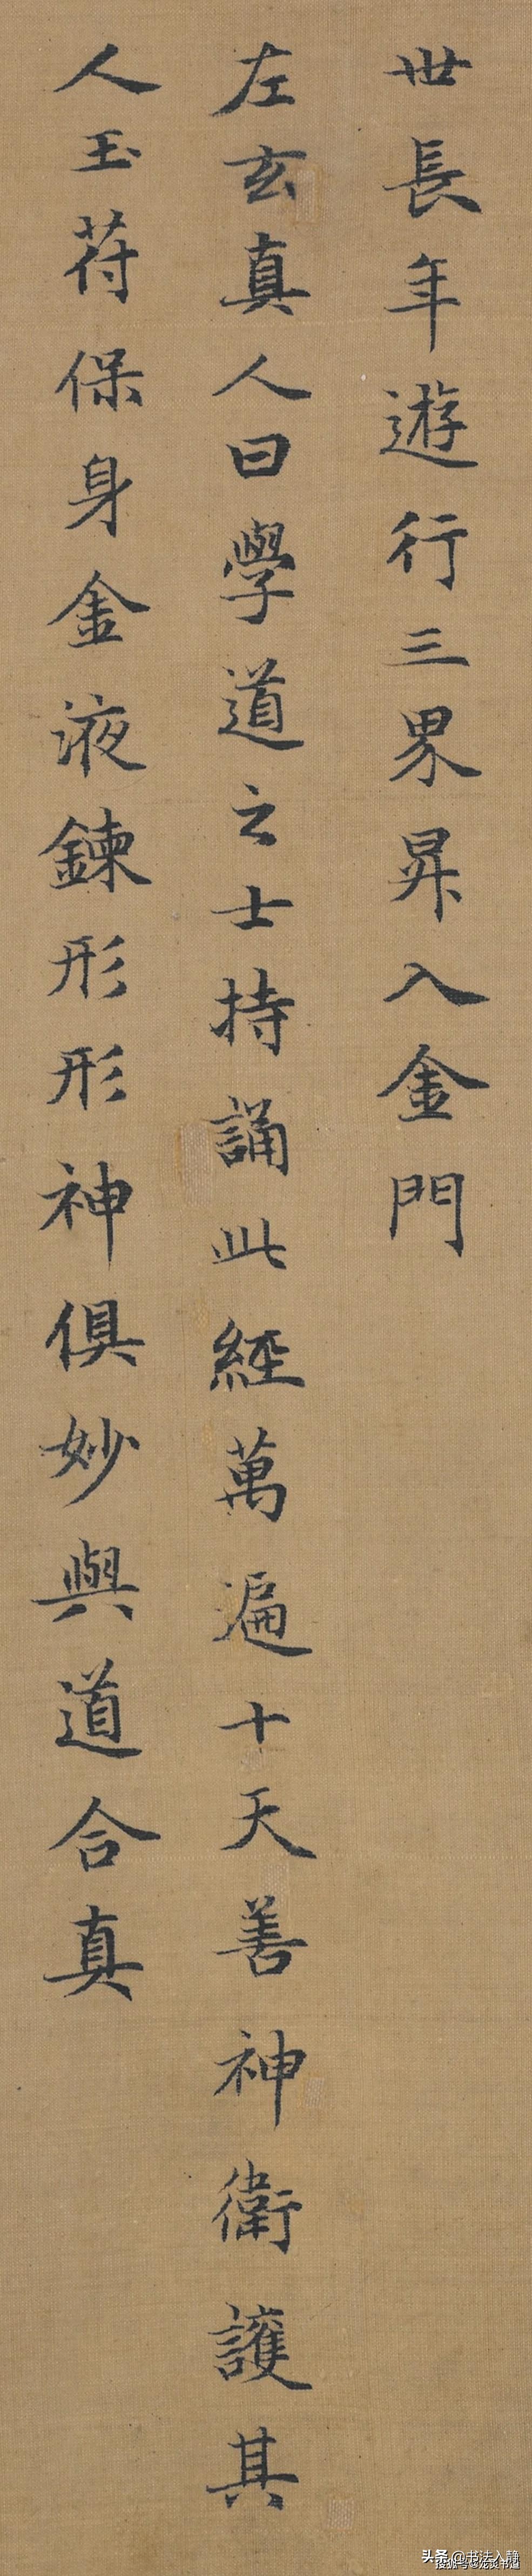 世長年遊行三界昇入金門
左玄真人曰學道之士持誦此經萬遍十天善神衛護其
人玉苻保身金液鍊形形神俱妙與道合真
头条 @书法入静